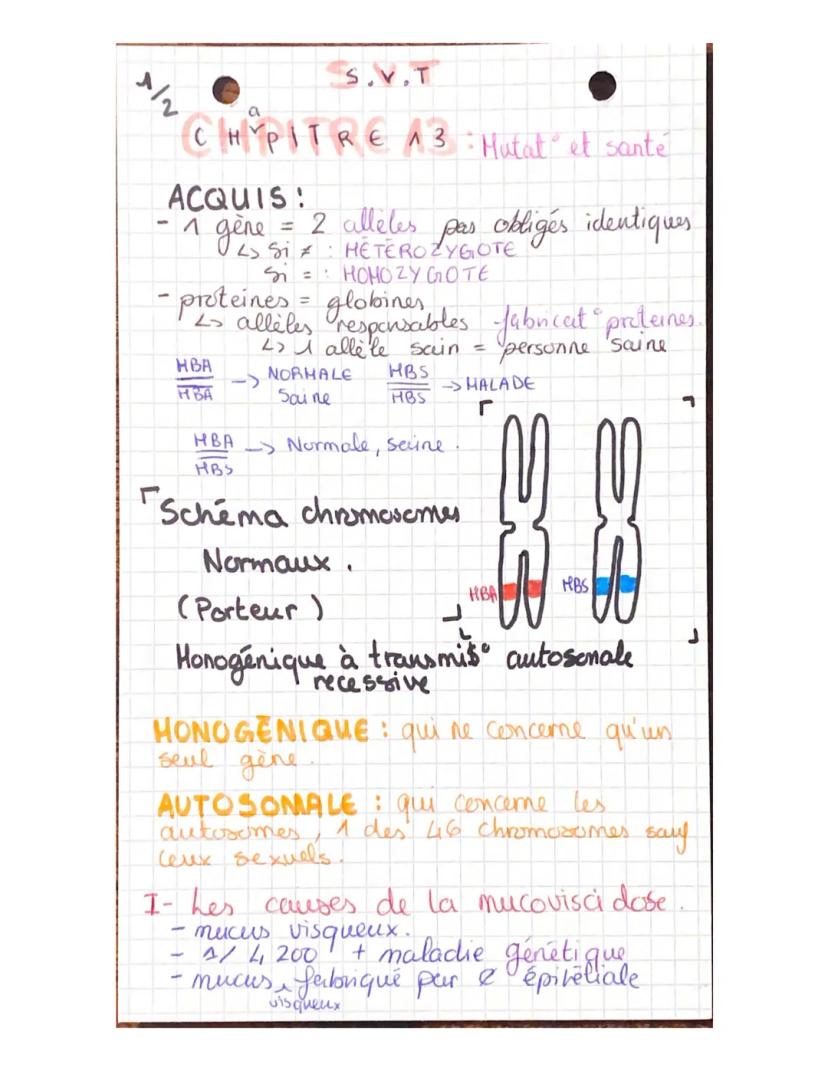 1/2
S.V.T
CHaPITRE 13 : Mutat° et santé
ACQUIS :
- 1 gène = 2 allèles pas obligés identiques
↳ Si ≠ : HÉTÉROZYGOTE
Si = : HOMOZYGOTE
- proteines = globines
↳ allèles responsables fabricat° proteines.
↳ 1 allèle sain = personne saine
HBA
HBA
-> NORMALE
Saine
HBS
HBS
-> MALADE
HBA
HBS
-> Normale, saine.
Schéma chromosomes
Normaux.
(Porteur)
HBA
HBS
Monogénique à transmis° autosomale
recessive
MONOGÉNIQUE : qui ne concerne qu'un
seul gène.
AUTOSOMALE : qui concerne les
autosomes, 1 des 46 chromosomes sauf
ceux sexuels.
I- Les causes de la mucoviscidose.
- mucus visqueux.
- 1/4 200 + maladie génétique
- mucus visqueux fabriqué par ¢ épitéliale